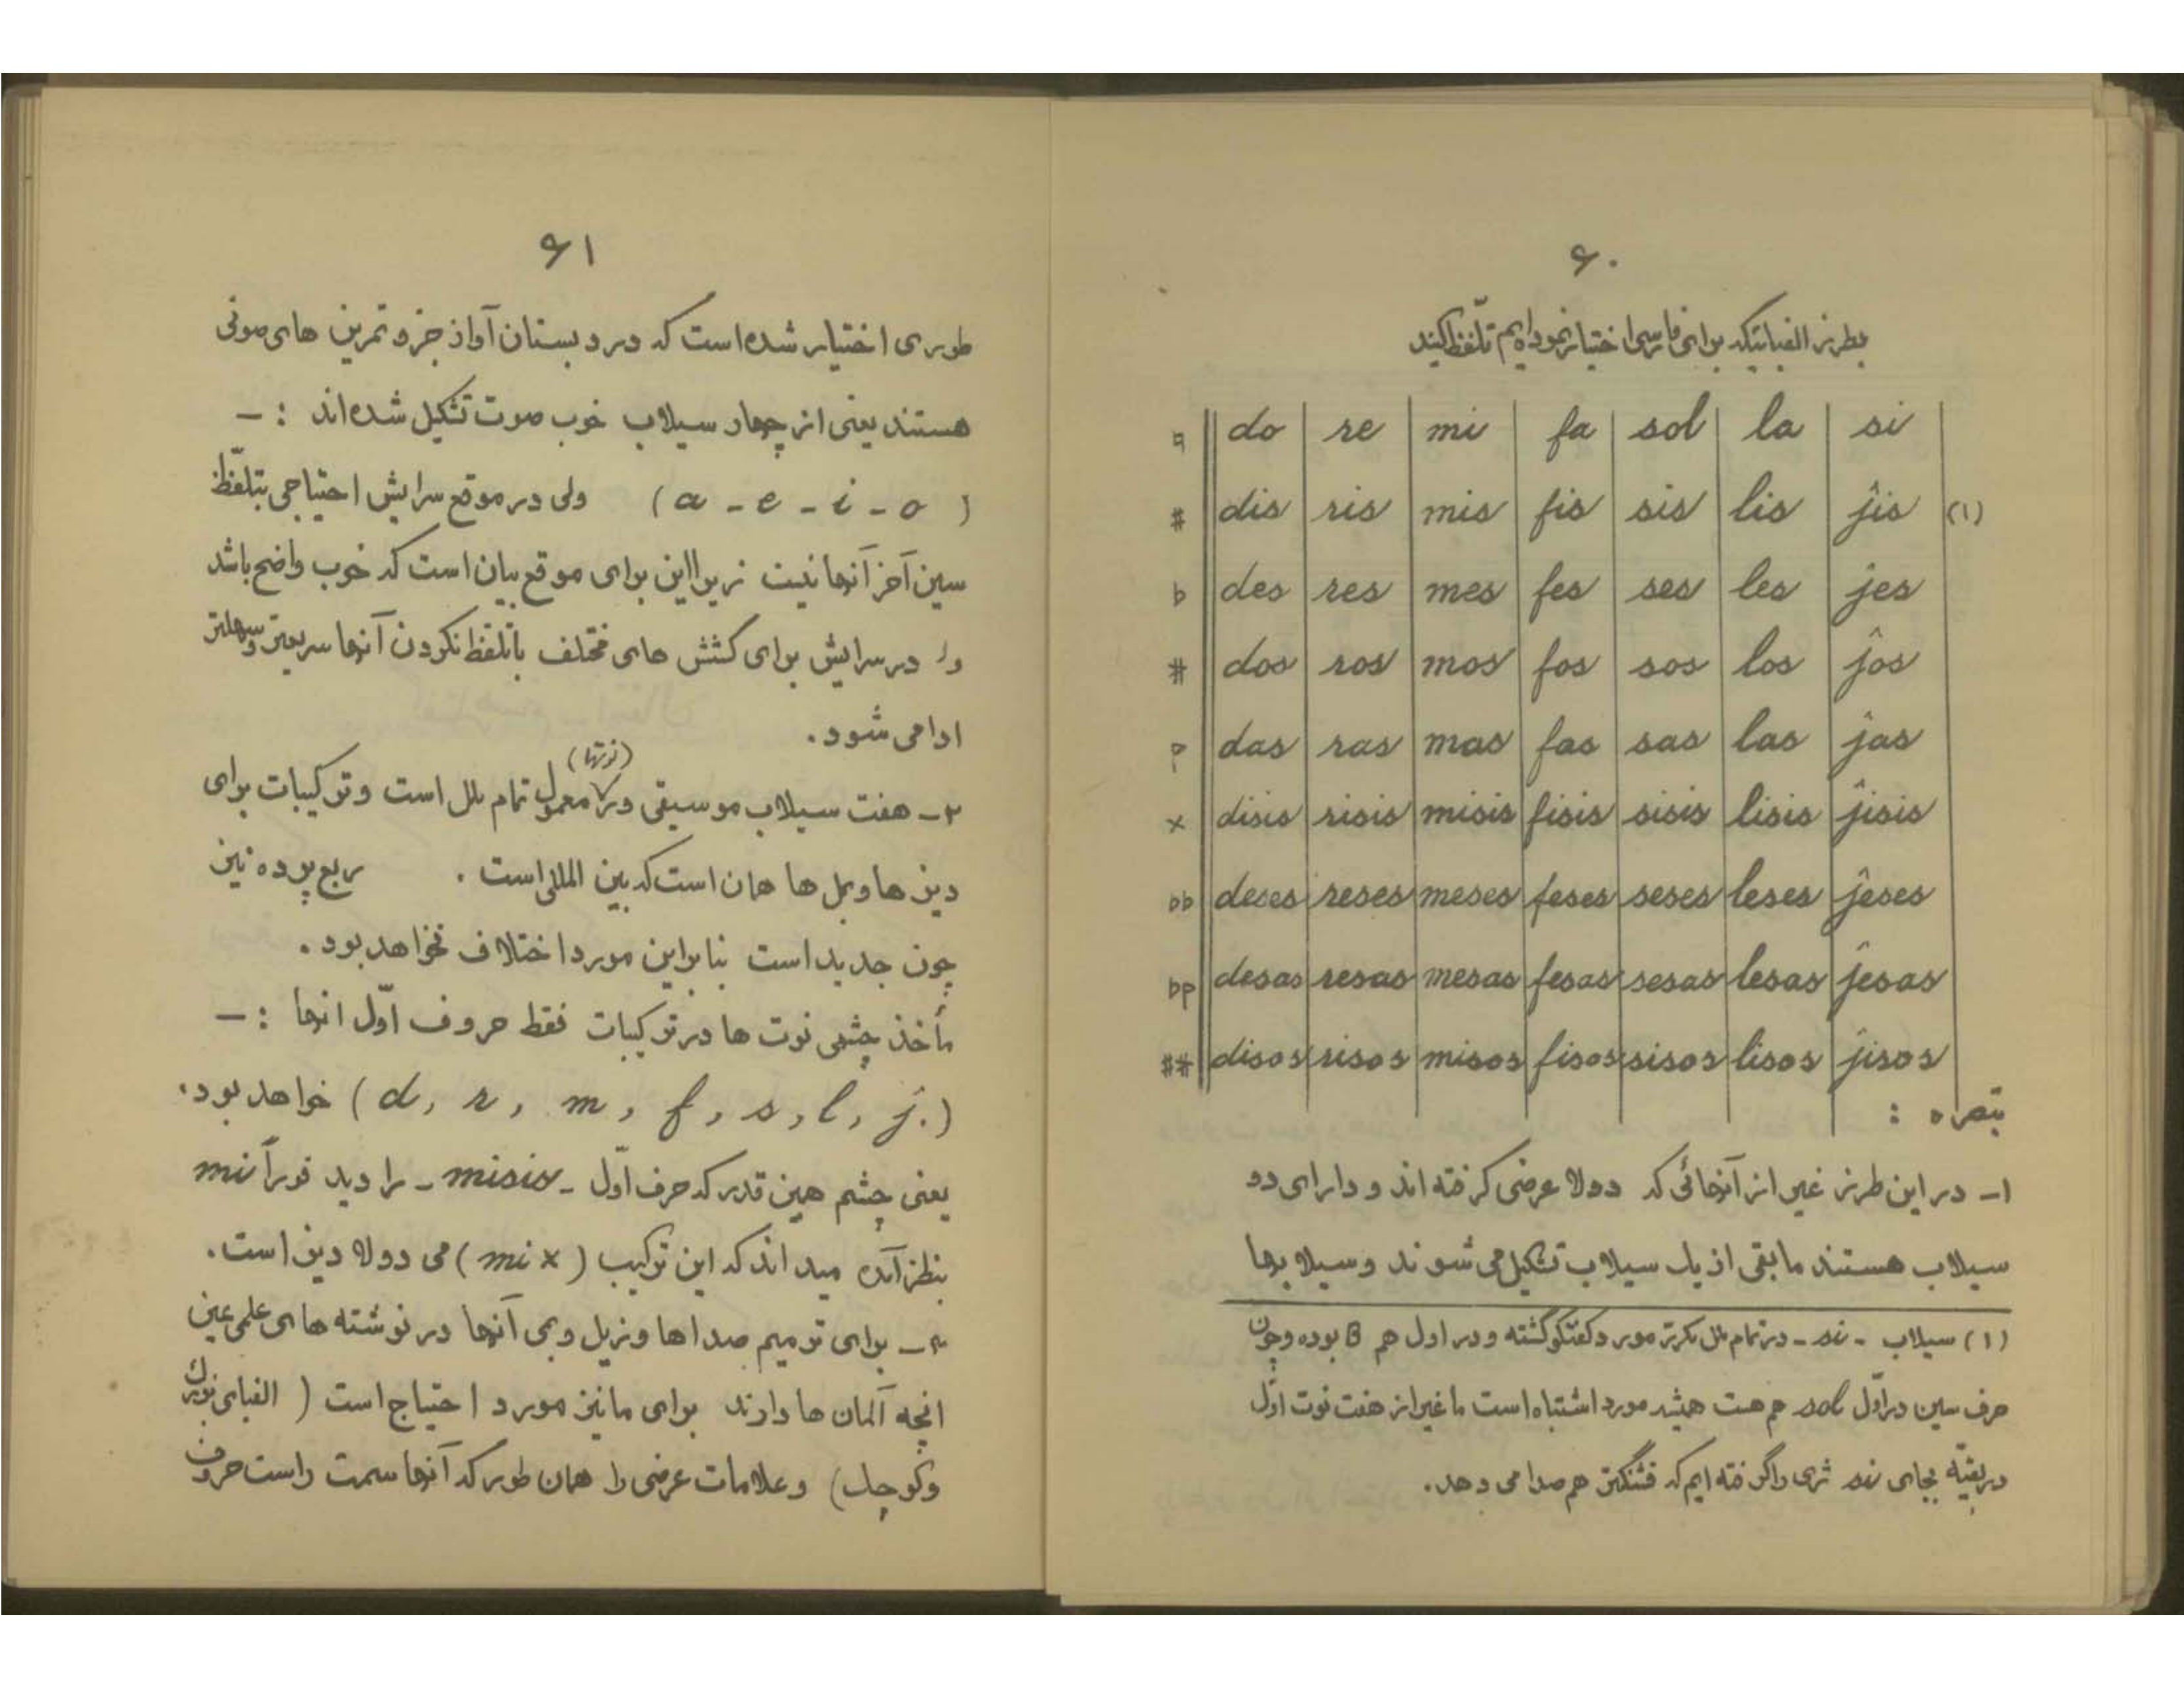 ۶۰
بطرز الفبائیکه برای فارسی اختیار نموده‌ایم تلّفظ کنید
♮ do re mi fa sol la si
# dis ris mis fis sis lis ĵis (۱)
b des res mes fes ses les ĵes
dos ros mos fos sos los ĵos
das ras mas fas sas las ĵas
x disis risis misis fisis sisis lisis ĵisis
bb deses reses meses feses seses leses ĵeses
desas resas mesas fesas sesas lesas ĵesas
disos risos misos fisos sisos lisos ĵisos
تبصره :
۱- در این طرز غیر از آنهائی که دولا عرضی گرفته اند و دارای دو
سیلاب هستند مابقی از یک سیلاب تشکیل می شوند و سیلابها
(۱) سیلاب - si - در تمام ملل مورد گفتگو گشته و در اول هم B بوده و چون
حرف سین در اوّل sol هم هست همیشه مورد اشتباه است ما غیر از هفت نوت اوّل
در بقیّه بجای si ژی را گرفته ایم که قشنگتر هم صدا می دهد.
۶۱
طوری اختیار شده است که در دبستان آواز جزو تمرین های صوتی
هستند یعنی از چهار سیلاب خوب صوت تشکیل شده اند : -
( a - e - i - o ) ولی در موقع سرایش احتیاجی بتلّفظ
سین آخر آنها نیست زیرا این برای موقع بیان است که خوب واضح باشد
و در سرایش برای کشش های مختلف با تلفظ نکردن آنها سریعتر و سهلتر
ادا می شود.
۲- هفت سیلاب موسیقی (نوتها) معمول تمام ملل است و ترکیبات برای
دیزها و بمل ها همان است که بین المللی است . ربع پرده نیز
چون جدید است بنابراین مورد اختلاف نخواهد بود .
مأخذ چشمی نوت ها در ترکیبات فقط حروف اوّل انها : -
(d, r, m, f, s, l, ĵ.) خواهد بود.
یعنی چشم همین قدر که حرف اوّل - misis - را دید فوراً mi
بنظر آمده میداند که این ترکیب (mi x) می دولا دیز است.
۳- برای ترمیم صداها و زیل و بمی آنها در نوشته های علمی عین
انچه آلمان ها دارند برای ما نیز مورد احتیاج است ( الفبای بزرگ
و کوچک) و علامات عرضی را همان طور که آنها سمت راست حروف